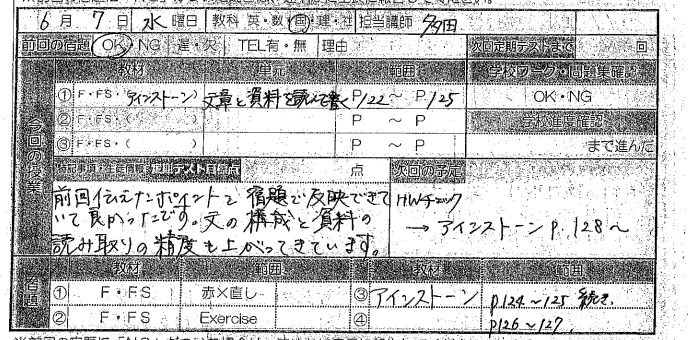 6月 7日 水曜日 教科 英・数・国・理・社 担当講師 多田
前回の宿題 OK・NG 遅・欠 TEL有・無 理由 次回定期テストまで 回
今回の授業
教材 単元 範囲 学校ワーク・問題集確認
① F・FS・(アインストーン) 文章と資料を読んで書く P122 ~ P125 OK・NG
② F・FS・( ) P ~ P 学校進度確認
③ F・FS・( ) P ~ P まで進んだ
特記事項・生徒情報 定期テスト目標点 点 次回の予定
前回伝えたポイントを宿題で反映できて HWチェック
いて良かったです。文の構成と資料の → アインストーン p.128~
読み取りの精度も上がってきています。
宿題
教材 範囲 教材 範囲
① F・FS 赤×直し ③ アインストーン p124~125 続き
② F・FS Exercise ④ p126~127